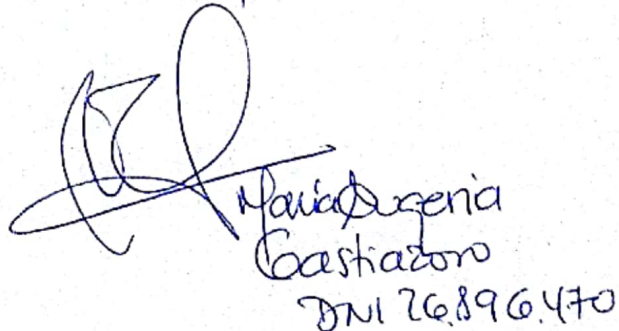 Maria Eugenia
Gastiazoro
DNI 26.896.470